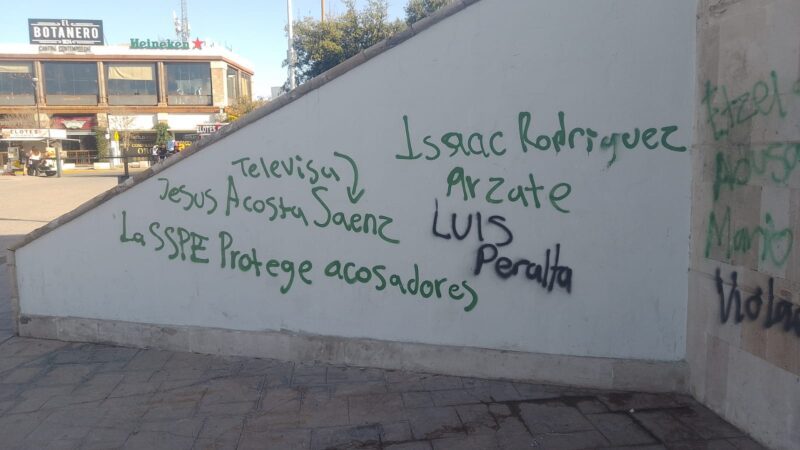 EL
BOTANERO
CANTINA CONTEMPORÁNEA
Heineken
ELOTES
ELOTES
Televisa
Jesus Acosta Saenz
La SSPE Protege acosadores
Isaac Rodriguez
Arzate
Luis
Peralta
Etzel
Mario